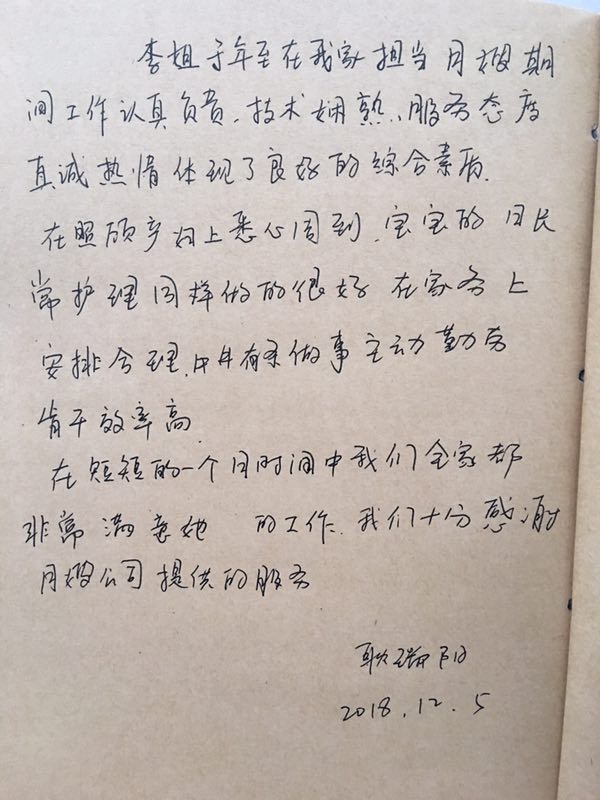 李姐于年至在我家担当月嫂期
间工作认真负责、技术娴熟、服务态度
真诚热情体现了良好的综合素质.
在照顾产妇上悉心周到、宝宝的日
常护理同样做的很好 在家务上
安排合理、井井有条做事主动勤劳
肯干效率高
在短短的一个月时间中我们全家都
非常满意她 的工作、我们十分感谢
月嫂公司提供的服务
耿瑞阳
2018.12.5